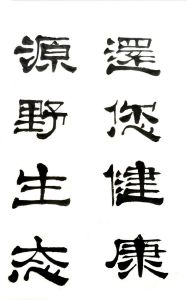 還您健康
源野生态